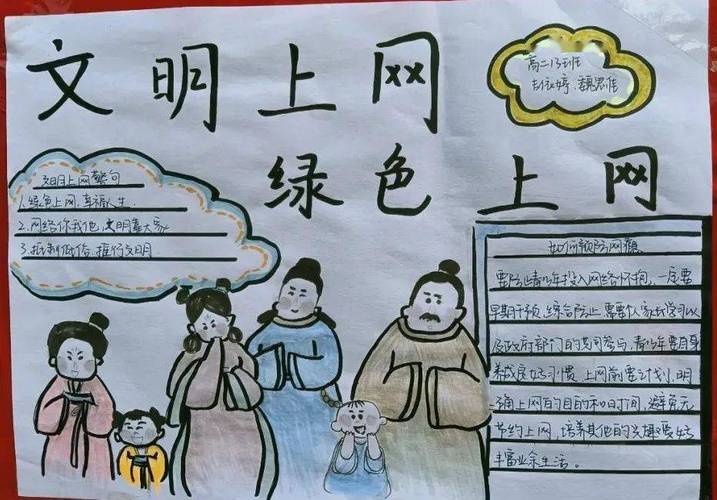 文明上网
绿色上网
高二13班
文明上网警句
1.绿色上网,幸福人生.
2.网络你我他,文明靠大家
3.抵制低俗,推行文明
如何预防网瘾
要防止青少年投入网络怀抱,一定要
早期干预,综合防止,需要个人家庭学习以
及政府部门的共同参与,青少年要自身
养成良好习惯,上网前要计划,明
确上网的目的和时间,避免无
节约上网,培养其他的兴趣爱好
丰富业余生活。